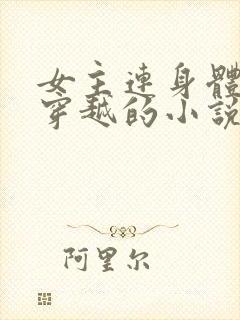 女主連身體
穿越的小說
阿里尔